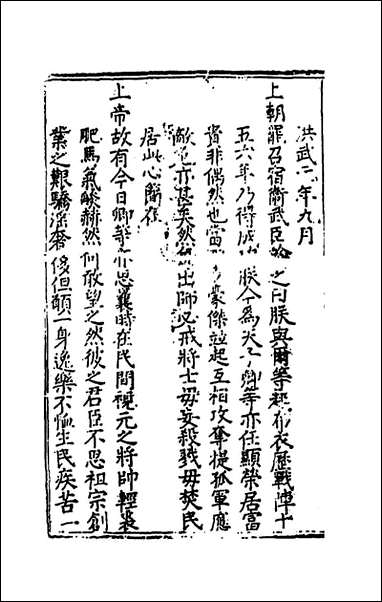 洪武二年九月
上朝罷召宿衛武臣諭之曰朕與爾等起布衣歷戰陣十
五六年乃得成 朕今為天子卿等亦任顯榮居富
貴非偶然也當 豪傑並起互相攻奪提孤軍應
敵 亦甚矣然 出師必戒將士毋妄殺戮毋焚民
居此心簡在
上帝故有今日卿等亦思曩時在民間視元之將帥輕裘
肥馬氣燄赫然何敢望之然彼之君臣不思祖宗創
業之艱驕淫奢侈但顧一身逸樂不恤生民疾苦一